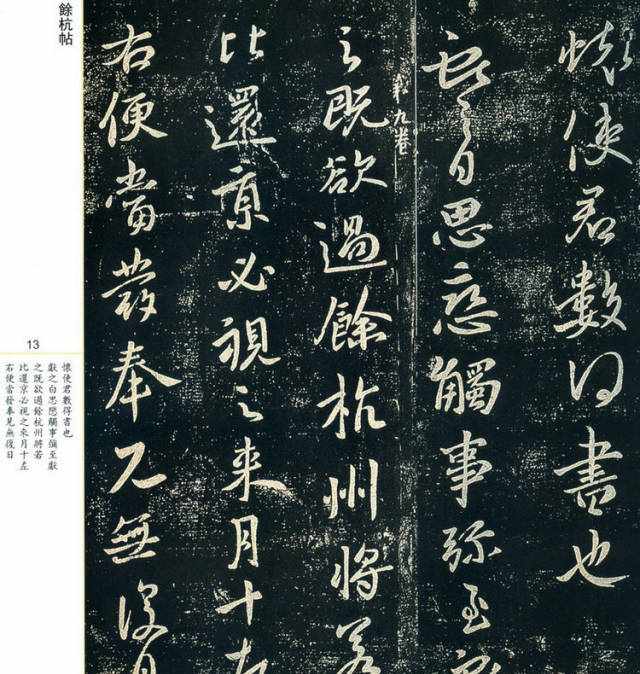 懷使君數得書也
獻之白思戀觸事彌至獻
第九卷
之既欲過餘杭州將若
比還京必視之來月十左
右便當發奉見無復日
餘杭帖
13
懷使君數得書也
獻之白思戀觸事彌至獻
之既欲過餘杭州將若
比還京必視之來月十左
右便當發奉見無復日